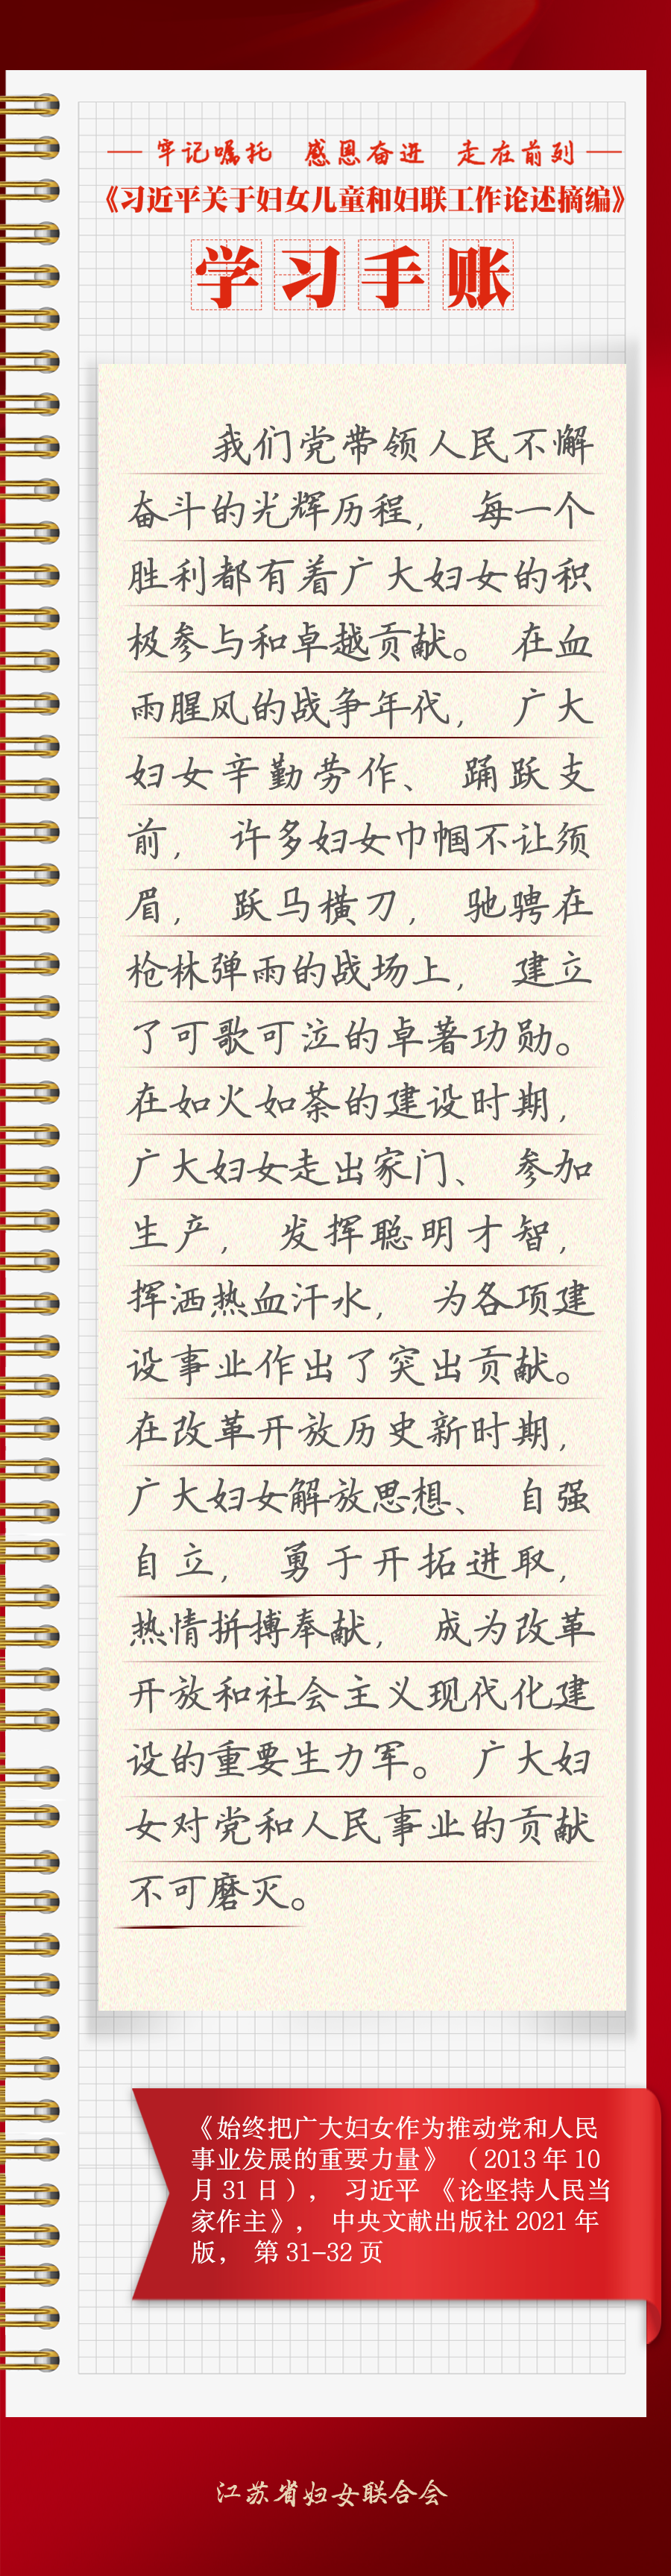 牢记嘱托 感恩奋进 走在前列
《习近平关于妇女儿童和妇联工作论述摘编》
学习手账
我们党带领人民不懈
奋斗的光辉历程， 每一个
胜利都有着广大妇女的积
极参与和卓越贡献。 在血
雨腥风的战争年代， 广大
妇女辛勤劳作、 踊跃支
前， 许多妇女巾帼不让须
眉， 跃马横刀， 驰骋在
枪林弹雨的战场上， 建立
了可歌可泣的卓著功勋。
在如火如荼的建设时期，
广大妇女走出家门、 参加
生产， 发挥聪明才智，
挥洒热血汗水， 为各项建
设事业作出了突出贡献。
在改革开放历史新时期，
广大妇女解放思想、 自强
自立， 勇于开拓进取，
热情拼搏奉献， 成为改革
开放和社会主义现代化建
设的重要生力军。 广大妇
女对党和人民事业的贡献
不可磨灭。
《始终把广大妇女作为推动党和人民
事业发展的重要力量》（2013 年 10
月 31 日）， 习近平 《论坚持人民当
家作主》， 中央文献出版社 2021 年
版， 第 31-32 页
江苏省妇女联合会